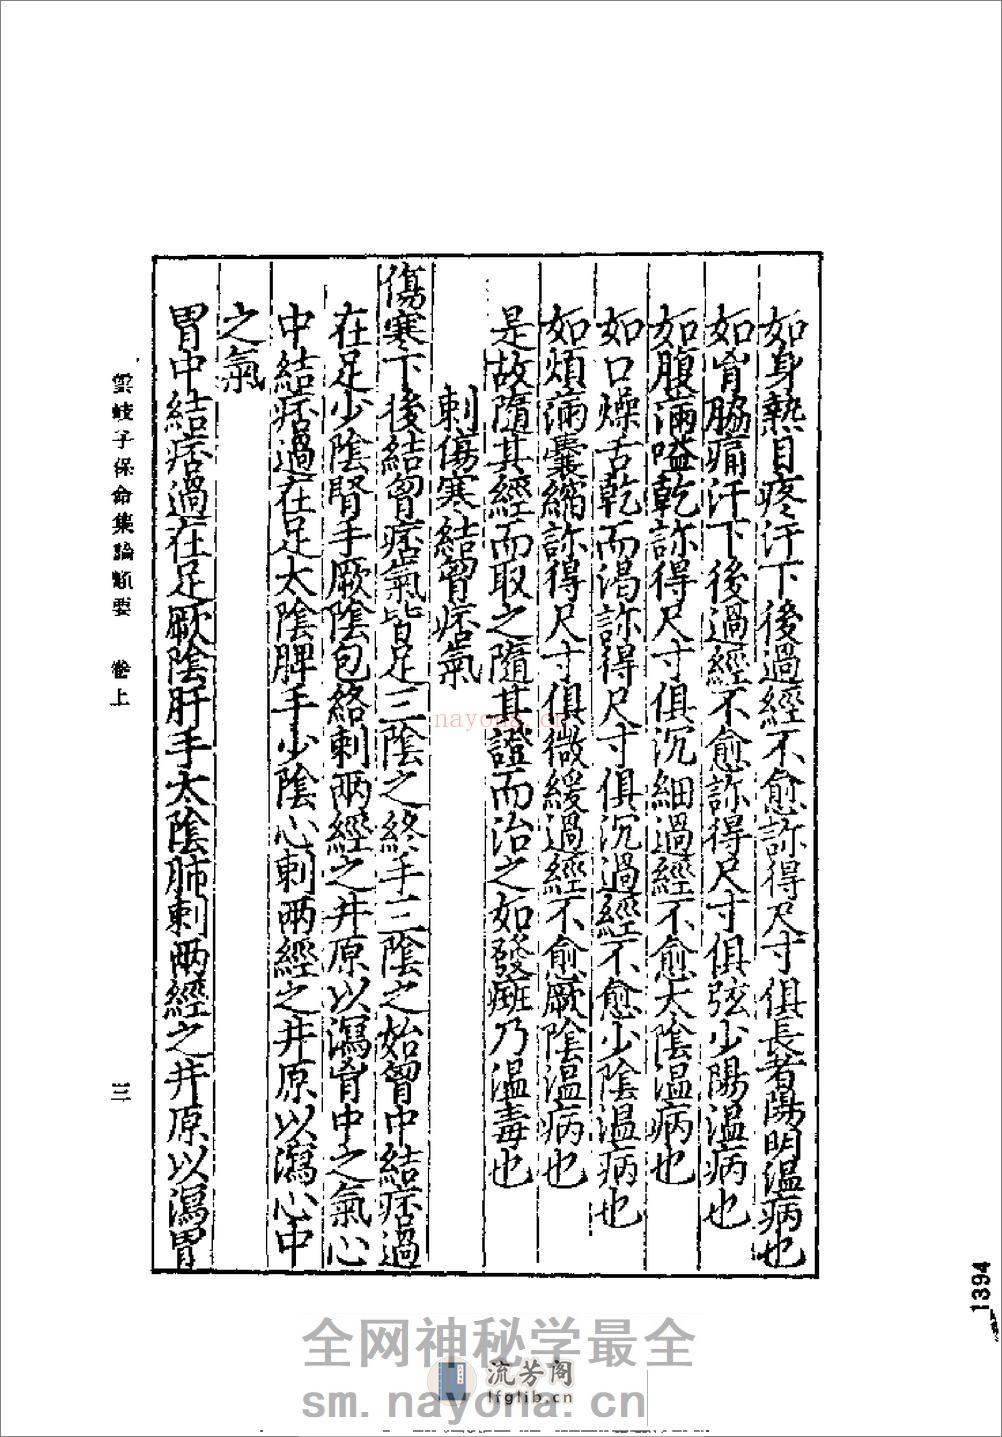 如身熱目疼汗下後過經不愈診得尺寸俱長者陽明温病也
如胷脇痛汗下後過經不愈診得尺寸俱弦少陽温病也
如腹滿嗌乾診得尺寸俱沉細過經不愈太陰温病也
如口燥舌乾而渴診得尺寸俱沉過經不愈少陰温病也
如煩滿囊縮診得尺寸俱微緩過經不愈厥陰温病也
是故隨其經而取之隨其證而治之如發斑乃温毒也
刺傷寒結胷痞氣
傷寒下後結胷痞氣皆足三陰之終手三陰之始胷中結痞過
在足少陰腎手厥陰包絡刺兩經之井原以瀉胷中之氣心
中結痞過在足太陰脾手少陰心刺兩經之井原以瀉心中
之氣
胃中結痞過在足厥陰肝手太陰肺刺兩經之井原以瀉胃
雲岐子保命集論類要 卷上
三
1394
nayona.cn
全网神秘学最全
流芳阁
lfglib.cn
sm.nayona.cn